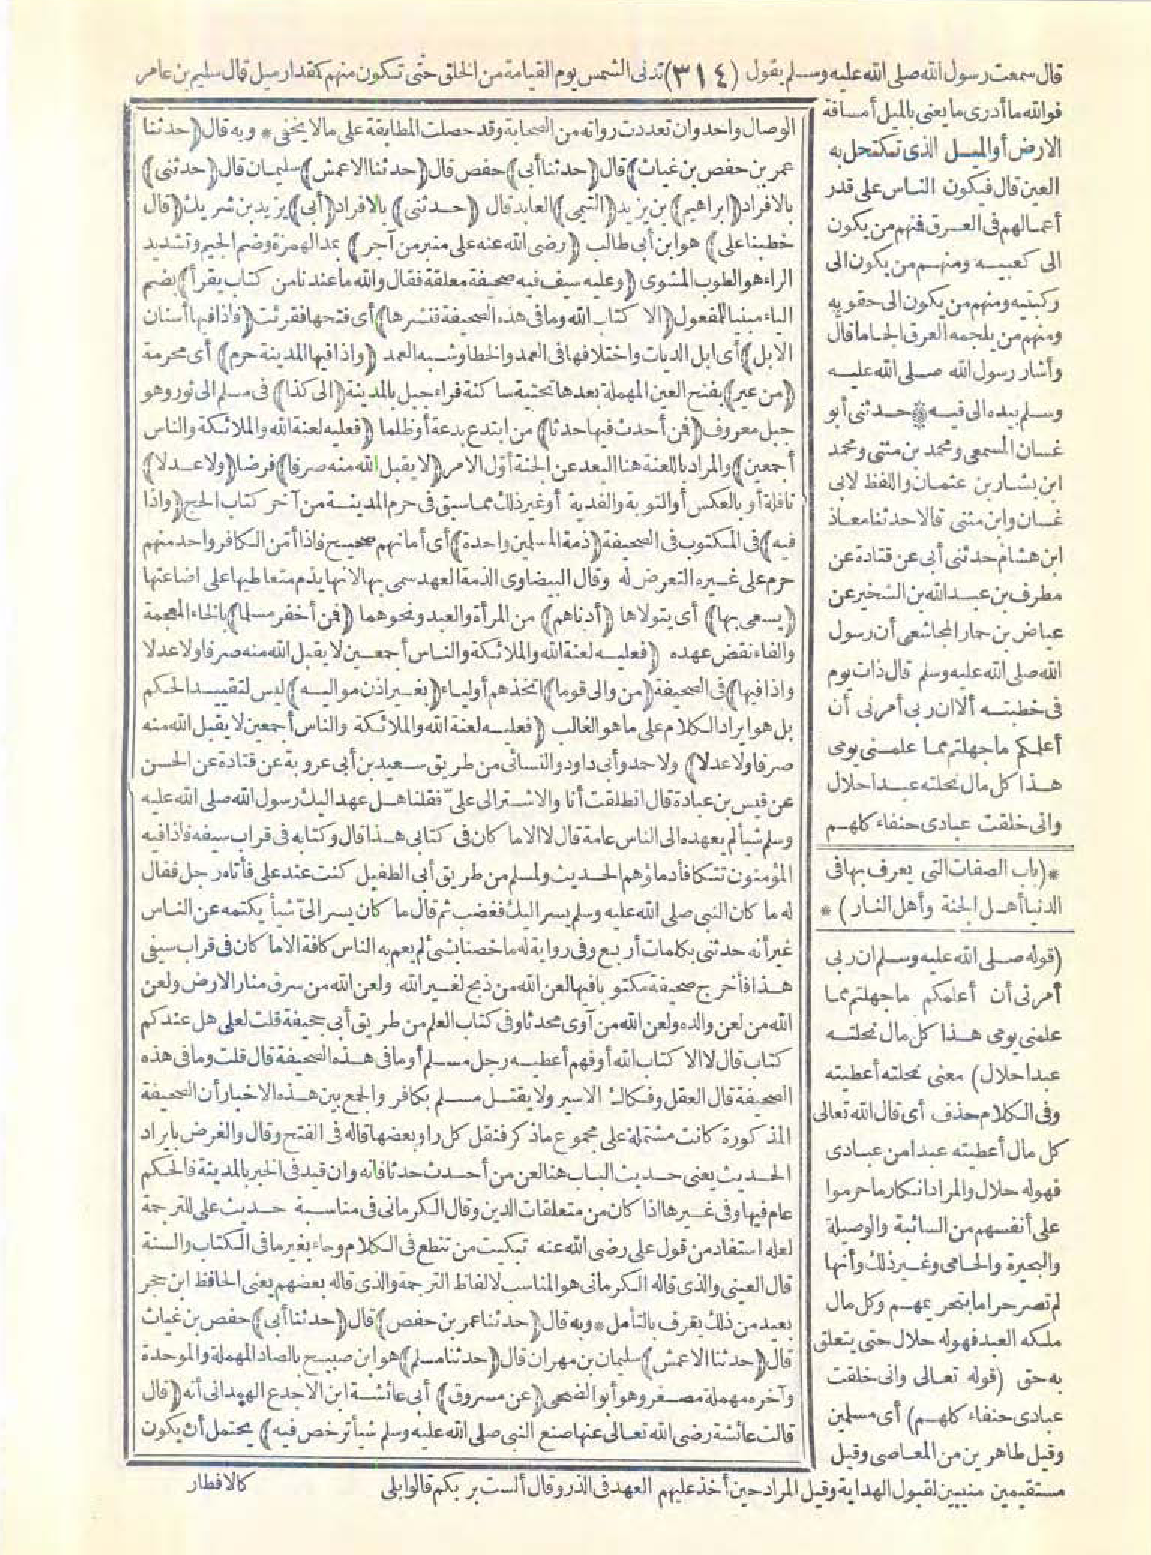 قال سمعت رسول الله صلى الله عليه وسلم يقول (٣١٤) تدنى الشمس يوم القيامة من الخلق حتى تكون منهم كمقدار ميل قال سليم بن عامر
فوالله ما أدرى ما يعنى بالميل أمسافة
الارض أو الميل الذى تكتحل به
العين قال فيكون الناس على قدر
أعمالهم فى العرق فمنهم من يكون
الى كعبيه ومنهم من يكون الى
ركبتيه ومنهم من يكون الى حقويه
ومنهم من يلجمه العرق الجاما قال
وأشار رسول الله صلى الله عليه
وسلم بيده الى فيه * حدثنى أبو
غسان المسمعى ومحمد بن مثنى ومحمد
ابن بشار بن عثمان واللفظ لابى
غسان وابن مثنى قالا حدثنا معاذ
ابن هشام حدثنى أبى عن قتادة عن
مطرف بن عبد الله بن الشخير عن
عياض بن حمار المجاشعى أن رسول
الله صلى الله عليه وسلم قال ذات يوم
فى خطبته ألا ان ربى أمرنى أن
أعلمكم ما جهلتم مما علمنى يومى
هذا كل مال نحلته عبدا حلال
وانى خلقت عبادى حنفاء كلهم
*(باب الصفات التى يعرف بها فى
الدنيا أهل الجنة وأهل النار)*
(قوله صلى الله عليه وسلم ان ربى
أمرنى أن أعلمكم ما جهلتم مما
علمنى يومى هذا كل مال نحلته
عبدا حلال) معنى نحلته أعطيته
وفى الكلام حذف أى قال الله تعالى
كل مال أعطيته عبدا من عبادى
فهو له حلال والمراد انكار ما حرموا
على أنفسهم من السائبة والوصيلة
والبحيرة والحامى وغير ذلك وأنها
لم تصر حراما بتحريمهم وكل مال
ملكه العبد فهو له حلال حتى يتعلق
به حق (قوله تعالى وانى خلقت
عبادى حنفاء كلهم) أى مسلمين
وقيل طاهرين من المعاصى وقيل
مستقيمين منيبين لقبول الهداية وقيل المراد حين أخذ عليهم العهد فى الذر وقال ألست بربكم قالوا بلى
الوصال واحد وان تعددت رواته من الصحابة وقد حصلت المطابقة على ما لا يخفى * وبه قال (حدثنا
عمر بن حفص بن غياث) قال (حدثنا أبى) حفص قال (حدثنا الاعمش) سليمان قال (حدثنى)
بالافراد (ابراهيم) بن يزيد (التيمى) العابد قال (حدثنى) بالافراد (أبى) يزيد بن شريك (قال
خطبنا على) هو ابن أبى طالب (رضى الله عنه على منبر من آجر) بمد الهمزة وضم الجيم وتشديد
الراء هو الطوب المشوى (وعليه سيف فيه صحيفة معلقة فقال والله ما عندنا من كتاب يقرأ) بضم
الياء مبنيا للمفعول (الا كتاب الله وما فى هذه الصحيفة فنشرها) أى فتحها فقرئت (فاذا فيها أسنان
الابل) أى ابل الديات واختلافها فى العمد والخطا وشبه العمد (واذا فيها المدينة حرم) أى محرمة
(من عير) بفتح العين المهملة بعدها تحتية ساكنة فراء جبل بالمدينة (الى كذا) فى مسلم الى ثور وهو
جبل معروف (فمن أحدث فيها حدثا) من ابتدع بدعة أو ظلما (فعليه لعنة الله والملائكة والناس
أجمعين) والمراد باللعنة هنا البعد عن الجنة أول الامر (لا يقبل الله منه صرفا) فرضا (ولا عدلا)
نافلة أو بالعكس أو التوبة والفدية أو غير ذلك مما سبق فى حرم المدينة من آخر كتاب الحج (واذا
فيه) فى المكتوب فى الصحيفة (ذمة المسلمين واحدة) أى أمانهم صحيح فاذا أمن الكافر واحد منهم
حرم على غيره التعرض له وقال البيضاوى الذمة العهد سمى بها لانها يذم متعاطيها على اضاعتها
(يسعى بها) أى يتولاها (أدناهم) من المرأة والعبد ونحوهما (فمن أخفر مسلما) بالخاء المعجمة
والفاء نقض عهده (فعليه لعنة الله والملائكة والناس أجمعين لا يقبل الله منه صرفا ولا عدلا
واذا فيها) فى الصحيفة (من والى قوما) اتخذهم أولياء (بغير اذن مواليه) ليس لتقييد الحكم
بل هو ايراد الكلام على ما هو الغالب (فعليه لعنة الله والملائكة والناس أجمعين لا يقبل الله منه
صرفا ولا عدلا) ولاحمد وأبى داود والنسائى من طريق سعيد بن أبى عروبة عن قتادة عن الحسن
عن قيس بن عبادة قال انطلقت أنا والاشتر الى على فقلنا هل عهد اليك رسول الله صلى الله عليه
وسلم شيأ لم يعهده الى الناس عامة قال لا الا ما كان فى كتابى هذا قال وكتابه فى قراب سيفه فاذا فيه
المؤمنون تتكافأ دماؤهم الحديث ولمسلم من طريق أبى الطفيل كنت عند على فأتاه رجل فقال
له ما كان النبى صلى الله عليه وسلم يسر اليك فغضب ثم قال ما كان يسر الىّ شيأ يكتمه عن الناس
غير أنه حدثنى بكلمات أربع وفى رواية له ما خصنا بشئ لم يعم به الناس كافة الا ما كان فى قراب سيفى
هذا فأخرج صحيفة مكتوبا فيها لعن الله من ذبح لغير الله ولعن الله من سرق منار الارض ولعن
الله من لعن والده ولعن الله من آوى محدثا وفى كتاب العلم من طريق أبى جحيفة قلت لعلى هل عندكم
كتاب قال لا الا كتاب الله أو فهم أعطيه رجل مسلم أو ما فى هذه الصحيفة قال قلت وما فى هذه
الصحيفة قال العقل وفكاك الاسير ولا يقتل مسلم بكافر والجمع بين هذه الاخبار أن الصحيفة
المذكورة كانت مشتملة على مجموع ما ذكر فنقل كل راو بعضها قاله فى الفتح وقال والغرض بايراد
الحديث يعنى حديث الباب هنا لعن من أحدث حدثا فانه وان قيد فى الخبر بالمدينة فالحكم
عام فيها وفى غيرها اذا كان من متعلقات الدين وقال الكرمانى فى مناسبة حديث على للترجمة
لعله استفاد من قول على رضى الله عنه تبكيت من تنطع فى الكلام وجاء بغير ما فى الكتاب والسنة
قال العينى والذى قاله الكرمانى هو المناسب لالفاظ الترجمة والذى قاله بعضهم يعنى الحافظ ابن حجر
بعيد من ذلك يعرف بالتأمل * وبه قال (حدثنا عمر بن حفص) قال (حدثنا أبى) حفص بن غياث
قال (حدثنا الاعمش) سليمان بن مهران قال (حدثنا مسلم) هو ابن صبيح بالصاد المهملة والموحدة
وآخره مهملة مصغر وهو أبو الضحى (عن مسروق) أبى عائشة ابن الاجدع الهمدانى أنه (قال
قالت عائشة رضى الله تعالى عنها صنع النبى صلى الله عليه وسلم شيأ ترخص فيه) يحتمل أن يكون
كالافطار